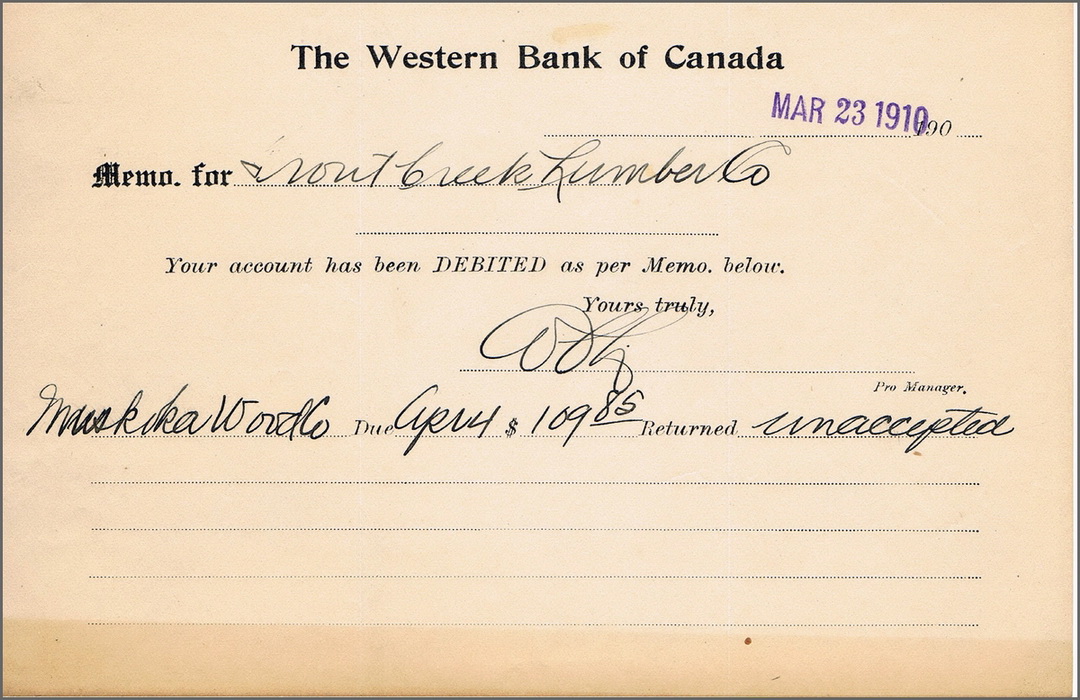 The Western Bank of Canada
MAR 23 1910 190
Memo. for Trout Creek Lumber Co
Your account has been DEBITED as per Memo. below.
Yours truly,
Pro Manager.
Muskoka Wood Co Due Apr 4 $ 109 85 Returned unaccepted